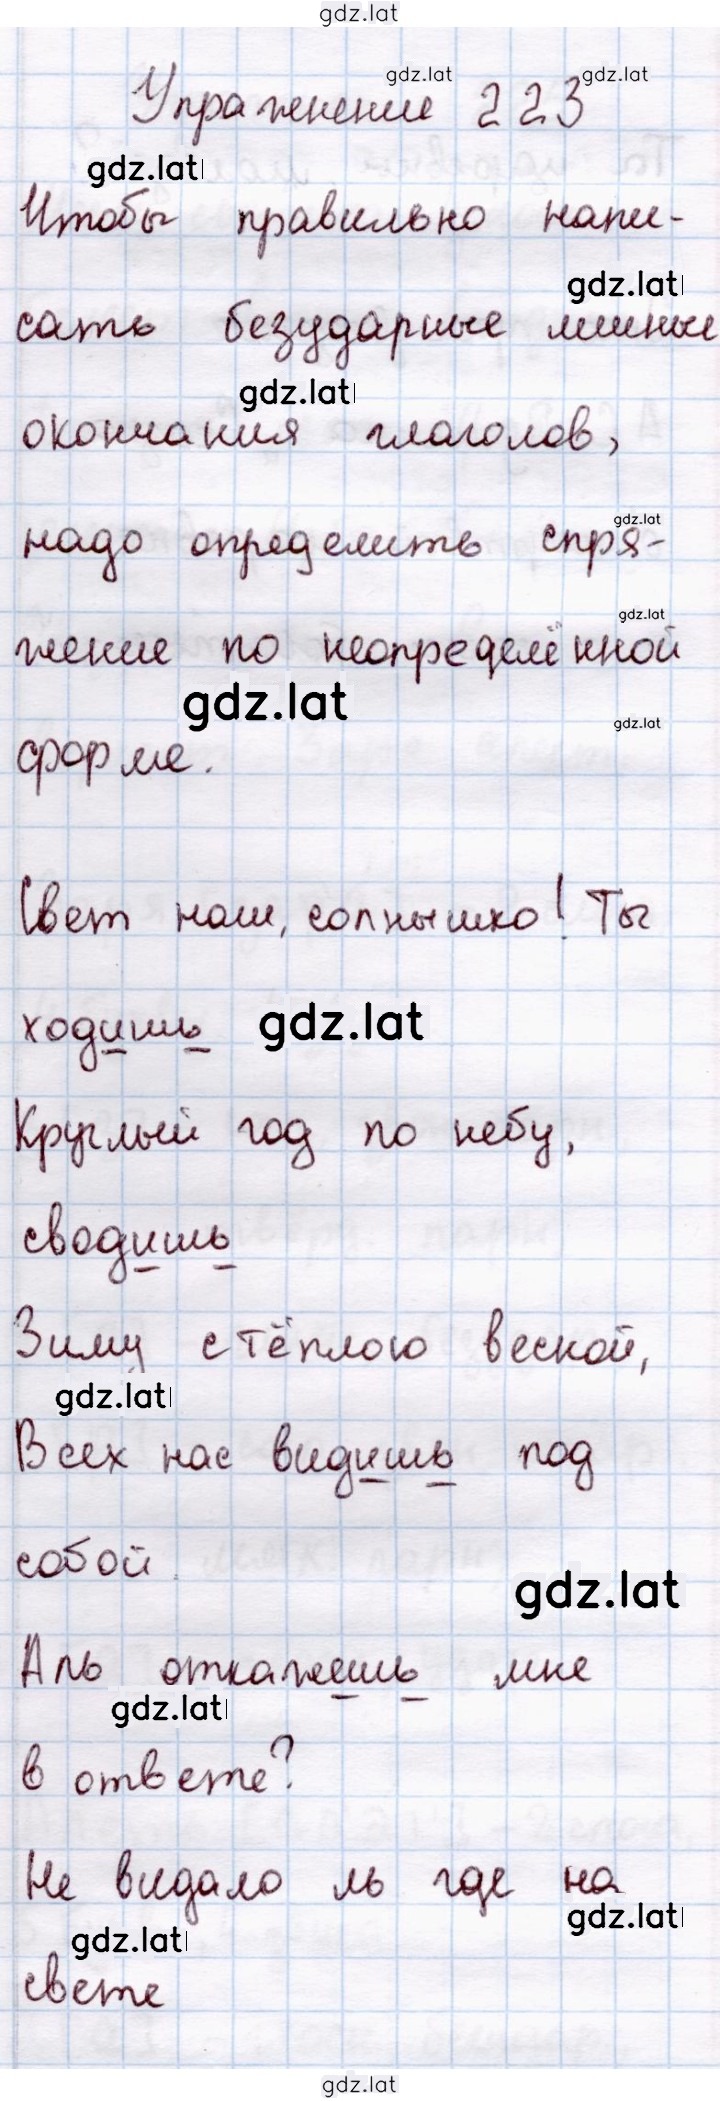 gdz.lat
Упражнение 223
gdz.lat
gdz.lat
gdz.lat
Чтобы правильно напи-
gdz.lat
сать безударные личные
gdz.lat
окончания глаголов,
gdz.lat
надо определить спря-
gdz.lat
жение по неопределённой
gdz.lat
gdz.lat
форме.
Свет наш, солнышко! Ты
ходишь
gdz.lat
Круглый год по небу,
сводишь
Зиму с тёплою весной,
gdz.lat
Всех нас видишь под
собой.
gdz.lat
Аль откажешь мне
gdz.lat
в ответе?
Не видало ль где на
gdz.lat
gdz.lat
свете
gdz.lat